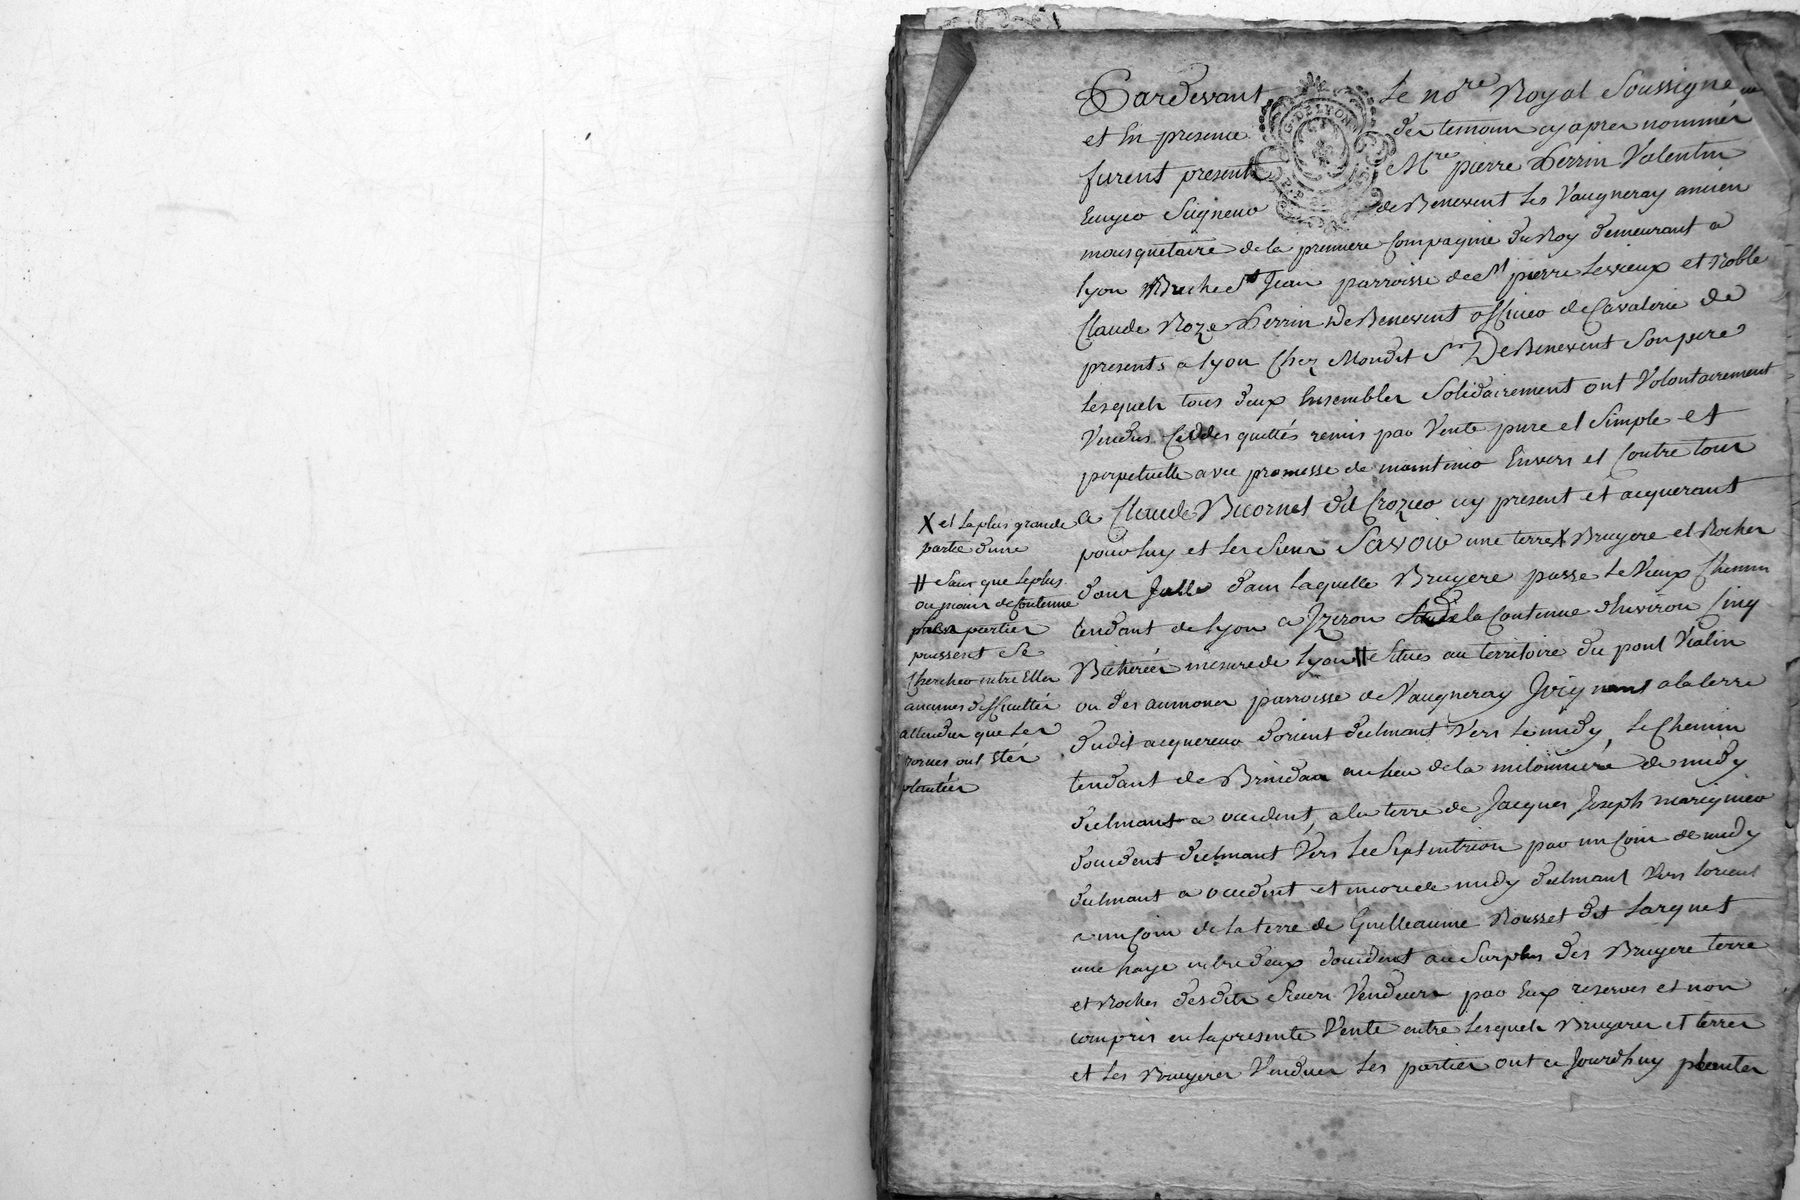 Pardevant Le no.re Royal Soussigné
et En presence des temoins cy apres nommés
furent present M.re pierre Perrin Valentin
Seigneur de Benevent Les Vaugneray ancien
mousquetaire de la premiere Compagnie du Roy demeurant a
lyon St Jean parroisse de St pierre Levieux et Noble
Claude Roze Perrin De Benevent officier de Cavalerie de
presents a lyon Chez Mondit Sr De Benevent Son pere
Lesquels tous deux Ensembles Solidairement ont Volontairement
Vendus Ceddés quittés remis par Vente pure et Simple et
perpetuelle avec promesse de maintenir Envers et Contre tous
a Claude Bicornet dit Crozier cy present et acquerant
pour luy et les Siens Savoir une terre X Bruyere et Rocher
dans laquelle Bruyere passe Le Vieux Chemin
tendant de lyon a Izeron de la Contenue d'Environ Cinq
Bicherées mesure de lyon # Situés au territoire du pont Vialin
ou des aumones parroisse de Vaugneray Joignant a la terre
dudit acquereur d'orient declinant Vers Le midy, Le Chemin
tendant de Brindas au lieu de la milonniere de midy
declinant a occident, a la terre de Jacques Joseph marignier
d'occident declinant Vers Le Septentrion par un Coin de midy
declinant a occident et encore de midy declinant Vers lorient
a un Coin de la terre de Guilleaume Rousset dit Larguet
une haye entre deux d'occident au Surplus des Bruyere terre
et Rocher desdits Sieurs Vendeurs par Eux reservés et non
compris en la presente Vente entre Lesquels Bruyeres et terres
et Les Bruyeres Venduës Les parties ont ce Jourd'huy planter
X et la plus grande
partie d'une
# Sans que le plus
ou moins de Contenue
parties
puissent Se
Chercher entre Elles
aucunes difficultés
attendu que Les
bornes ont Etés
plantées
G. DE LYON